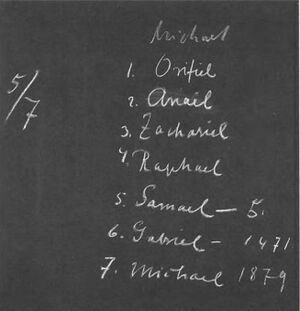 Michael
5/7
1. Orifiel
2. Anaël
3. Zachariel
4. Raphael
5. Samael — 5.
6. Gabriel — 1471
7. Michael 1879